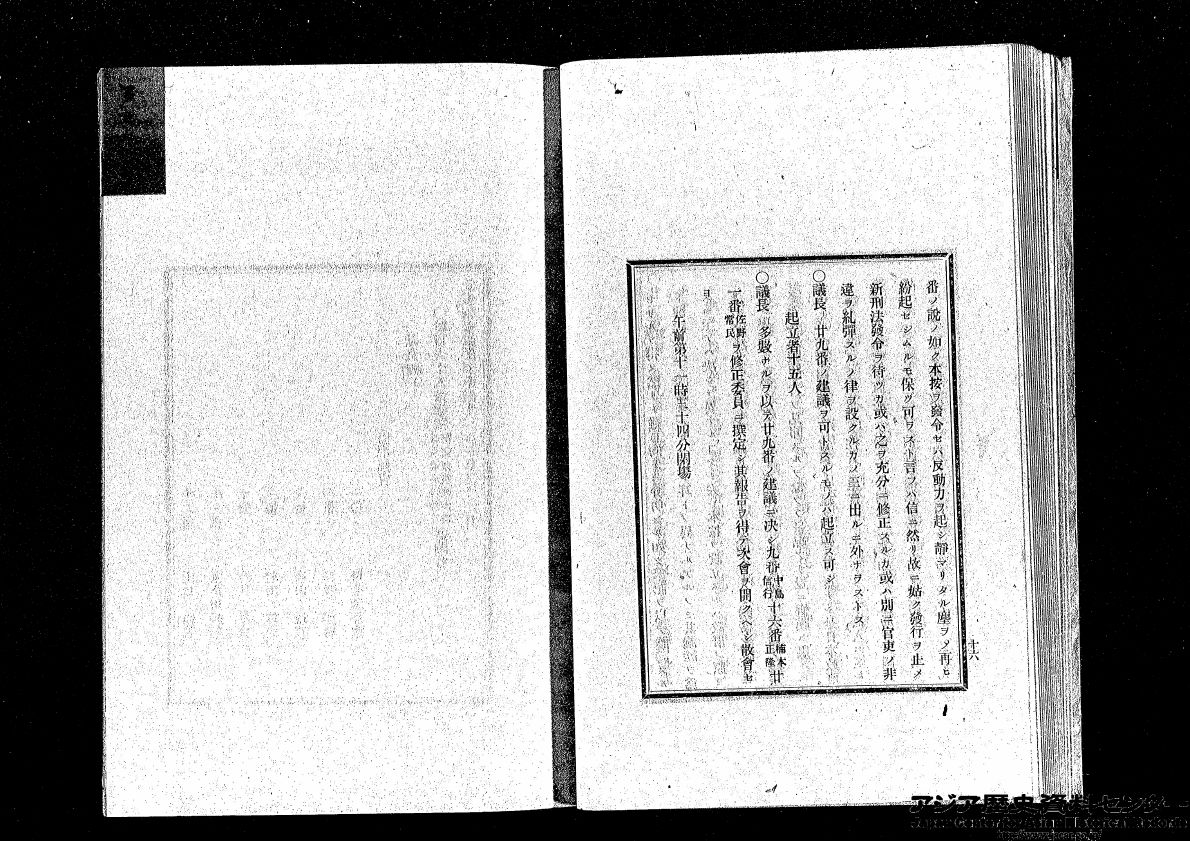 番ノ說ノ如ク本按ヲ發令セハ反動力ヲ起シ靜マリタル塵ヲ再ヒ
紛起セシムルモ保ツ可ラスト言フハ信ニ然リ故ニ姑ク發行ヲ止メ
新刑法發令ヲ待ツカ或ハ之ヲ充分ニ修正スルカ或ハ別ニ官吏ノ非
違ヲ糺彈スルノ律ヲ設クルカノ三ニ出ルニ外ナラストス
〇議長 廿九番ノ建議ヲ可トスルモノハ起立ス可シ
起立者十五人
〇議長 多數ナルヲ以テ廿九番ノ建議ニ決シ九番中島信行十六番楠本正隆廿
一番佐野常民ヲ修正委員ニ撰定シ其報告ヲ得テ次會ヲ開クヘシ散會セ
ヨ
午前第十一時三十四分閉場
廿六
アジア歴史資料センター
Japan Center for Asian Historical Records
http://www.jacar.go.jp/